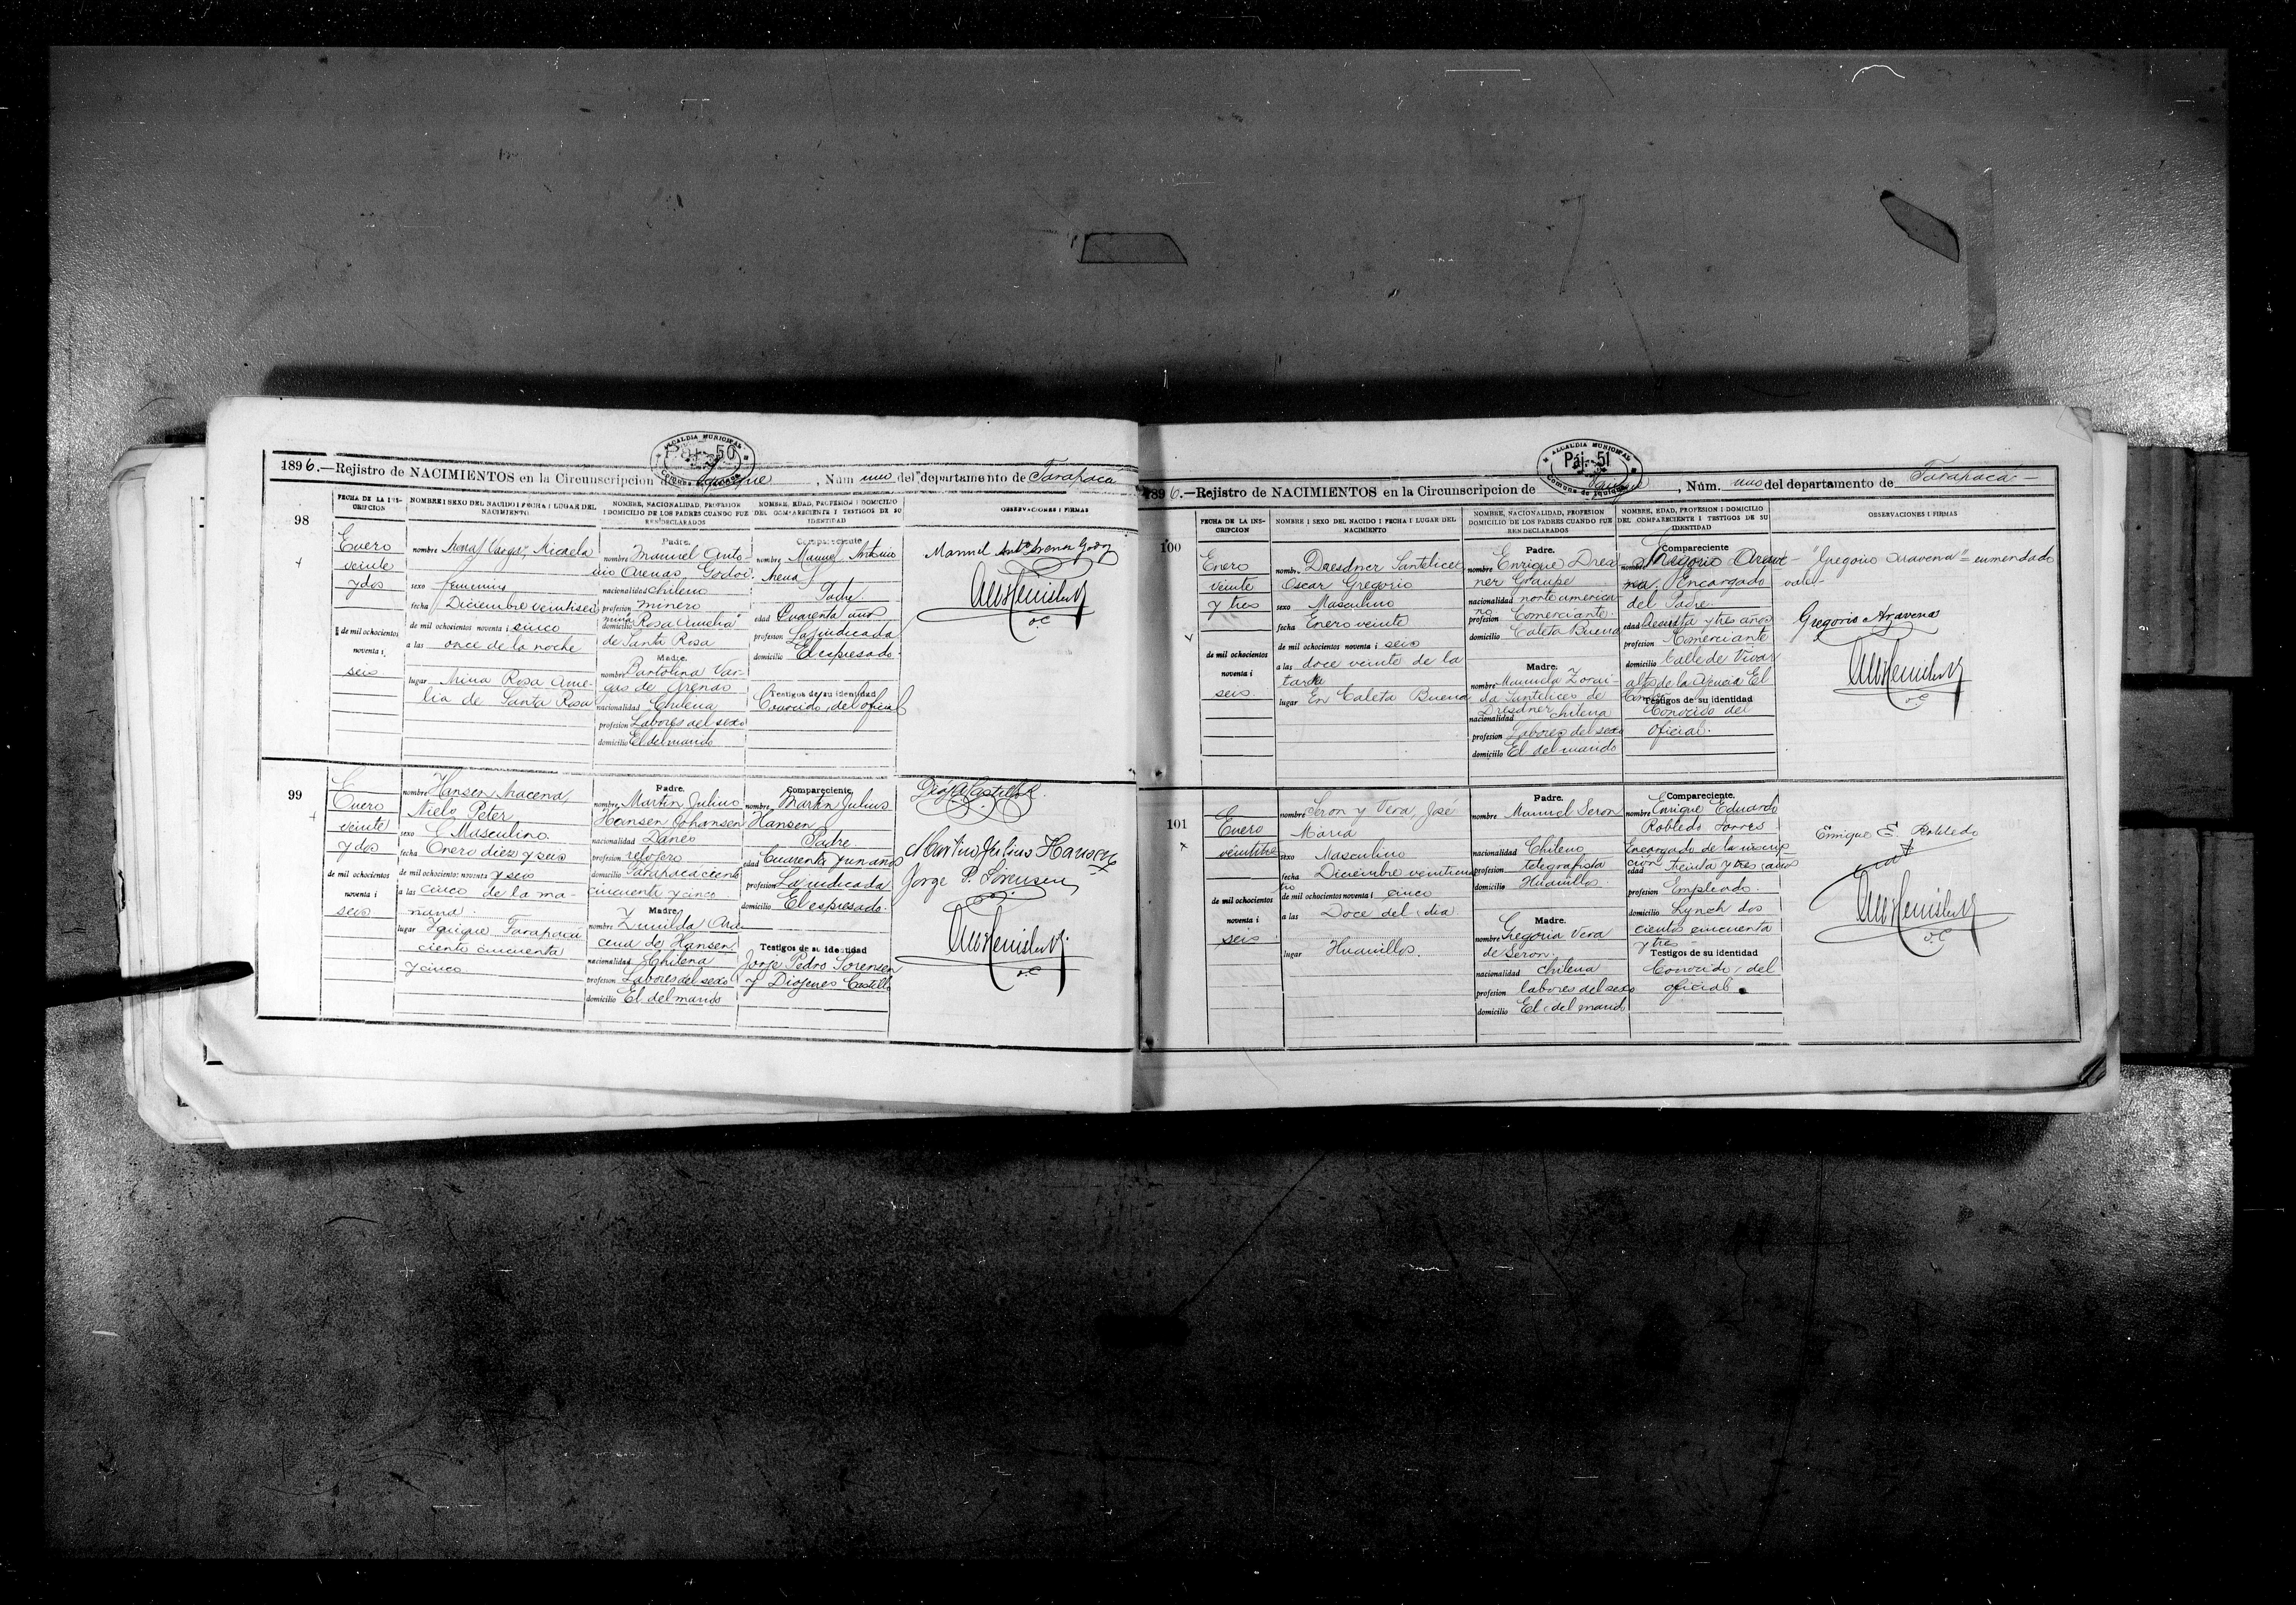 ALCALDIA MUNICIPAL
Páj. 50
Comuna de Iquique
1896.—Rejistro de NACIMIENTOS en la Circunscripcion de Iquique, Núm uno del departamento de Tarapaca
FECHA DE LA INSCRIPCION
NOMBRE I SEXO DEL NACIDO I FECHA I LUGAR DEL NACIMIENTO
NOMBRE, NACIONALIDAD, PROFESION I DOMICILIO DE LOS PADRES CUANDO FUEREN DECLARADOS
NOMBRE, EDAD, PROFESION I DOMICILIO DEL COMPARECIENTE I TESTIGOS DE SU IDENTIDAD
OBSERVACIONES I FIRMAS
98
Enero
veinte
y dos
de mil ochocientos
noventa i
seis
nombre Arenas Vargas, Micaela
sexo femenino
fecha Diciembre veintiseis
de mil ochocientos noventa i cinco
a las once de la noche
lugar Mina Rosa Ame-
lia de Santa Rosa
Padre.
nombre Manuel Anto-
nio Arenas Godoi
nacionalidad chileno
profesion minero
domicilio mina "Rosa Amelia"
de Santa Rosa
Madre.
nombre Bartolina Var-
gas de Arenas
nacionalidad Chilena
profesion Labores del sexo
domicilio El del marido
Compareciente
nombre Manuel Antonio
Arenas
Padre
edad Cuarenta años
profesion La indicada
domicilio El espresado
Testigos de su identidad
Conocido del oficial
Manuel Anto Arenas Godoy
o.C
99
Enero
veinte
y dos
de mil ochocientos
noventa i
seis
nombre Hansen Aracena,
Niels Peter
sexo Masculino
fecha Enero diez y seis
de mil ochocientos noventa y seis
a las cinco de la ma-
ñana
lugar Iquique Tarapacá
ciento cincuenta
y cinco
Padre.
nombre Martin Julius
Hansen Johansen
nacionalidad Danes
profesion relojero
domicilio Tarapacá ciento
cincuenta y cinco
Madre.
nombre Zunilda Ara-
cena de Hansen
nacionalidad Chilena
profesion Labores del sexo
domicilio El del marido
Compareciente.
nombre Martin Julius
Hansen
Padre
edad Cuarenta y un años
profesion La indicada
domicilio El espresado.
Testigos de su identidad
Jorje Pedro Sorensen
y Diojenes Castillo
Martin Julius Hansen
Jorge P. Sörensen
o.C
ALCALDIA MUNICIPAL
Páj. 51
Comuna de Iquique
1896.—Rejistro de NACIMIENTOS en la Circunscripcion de Iquique, Núm. uno del departamento de Tarapaca
FECHA DE LA INSCRIPCION
NOMBRE I SEXO DEL NACIDO I FECHA I LUGAR DEL NACIMIENTO
NOMBRE, NACIONALIDAD, PROFESION I DOMICILIO DE LOS PADRES CUANDO FUEREN DECLARADOS
NOMBRE, EDAD, PROFESION I DOMICILIO DEL COMPARECIENTE I TESTIGOS DE SU IDENTIDAD
OBSERVACIONES I FIRMAS
100
Enero
veinte
y tres
de mil ochocientos
noventa i
seis
nombre Dresdner Santelices
Oscar Gregorio
sexo Masculino
fecha Enero veinte
de mil ochocientos noventa i seis
a las doce veinte de la
tarde
lugar En Caleta Buena
Padre.
nombre Enrique Dres-
ner Graupe
nacionalidad norte america-
no
profesion Comerciante.
domicilio Caleta Buena
Madre.
nombre Manuela Zorai-
da Santelices de
Dresdner
nacionalidad chilena
profesion Labores del sexo
domicilio El del marido
Compareciente
nombre Gregorio Arave-
na, Encargado
del Padre.
edad Sesenta y tres años
profesion Comerciante
domicilio Calle de Vivar
altos de la Ajencia El
Testigos de su identidad
Conocido del
oficial.
"Gregorio Aravena" = enmendado
vale-
Gregorio Aravena
o.C
101
Enero
veintitres
de mil ochocientos
noventa i
seis
nombre Seron y Vera, José
Maria
sexo Masculino
fecha Diciembre veintiun
de mil ochocientos noventa i cinco
a las Doce del dia
lugar Huanillos.
Padre.
nombre Manuel Seron
nacionalidad Chileno
profesion telegrafista
domicilio Huanillos
Madre.
nombre Gregoria Vera
de Seron.
nacionalidad chilena
profesion labores del sexo
domicilio El del marido
Compareciente.
nombre Enrique Eduardo
Robledo Torres
Encargado de la inscrip
ción
edad treinta y tres años
profesion Empleado.
domicilio Lynch dos
cientos cincuenta
y tres
Testigos de su identidad
Conocido del
oficial.
Enrique E. Robledo
o.C